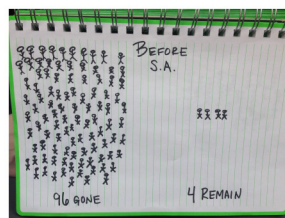 BEFORE
S.A.
96 GONE
4 REMAIN